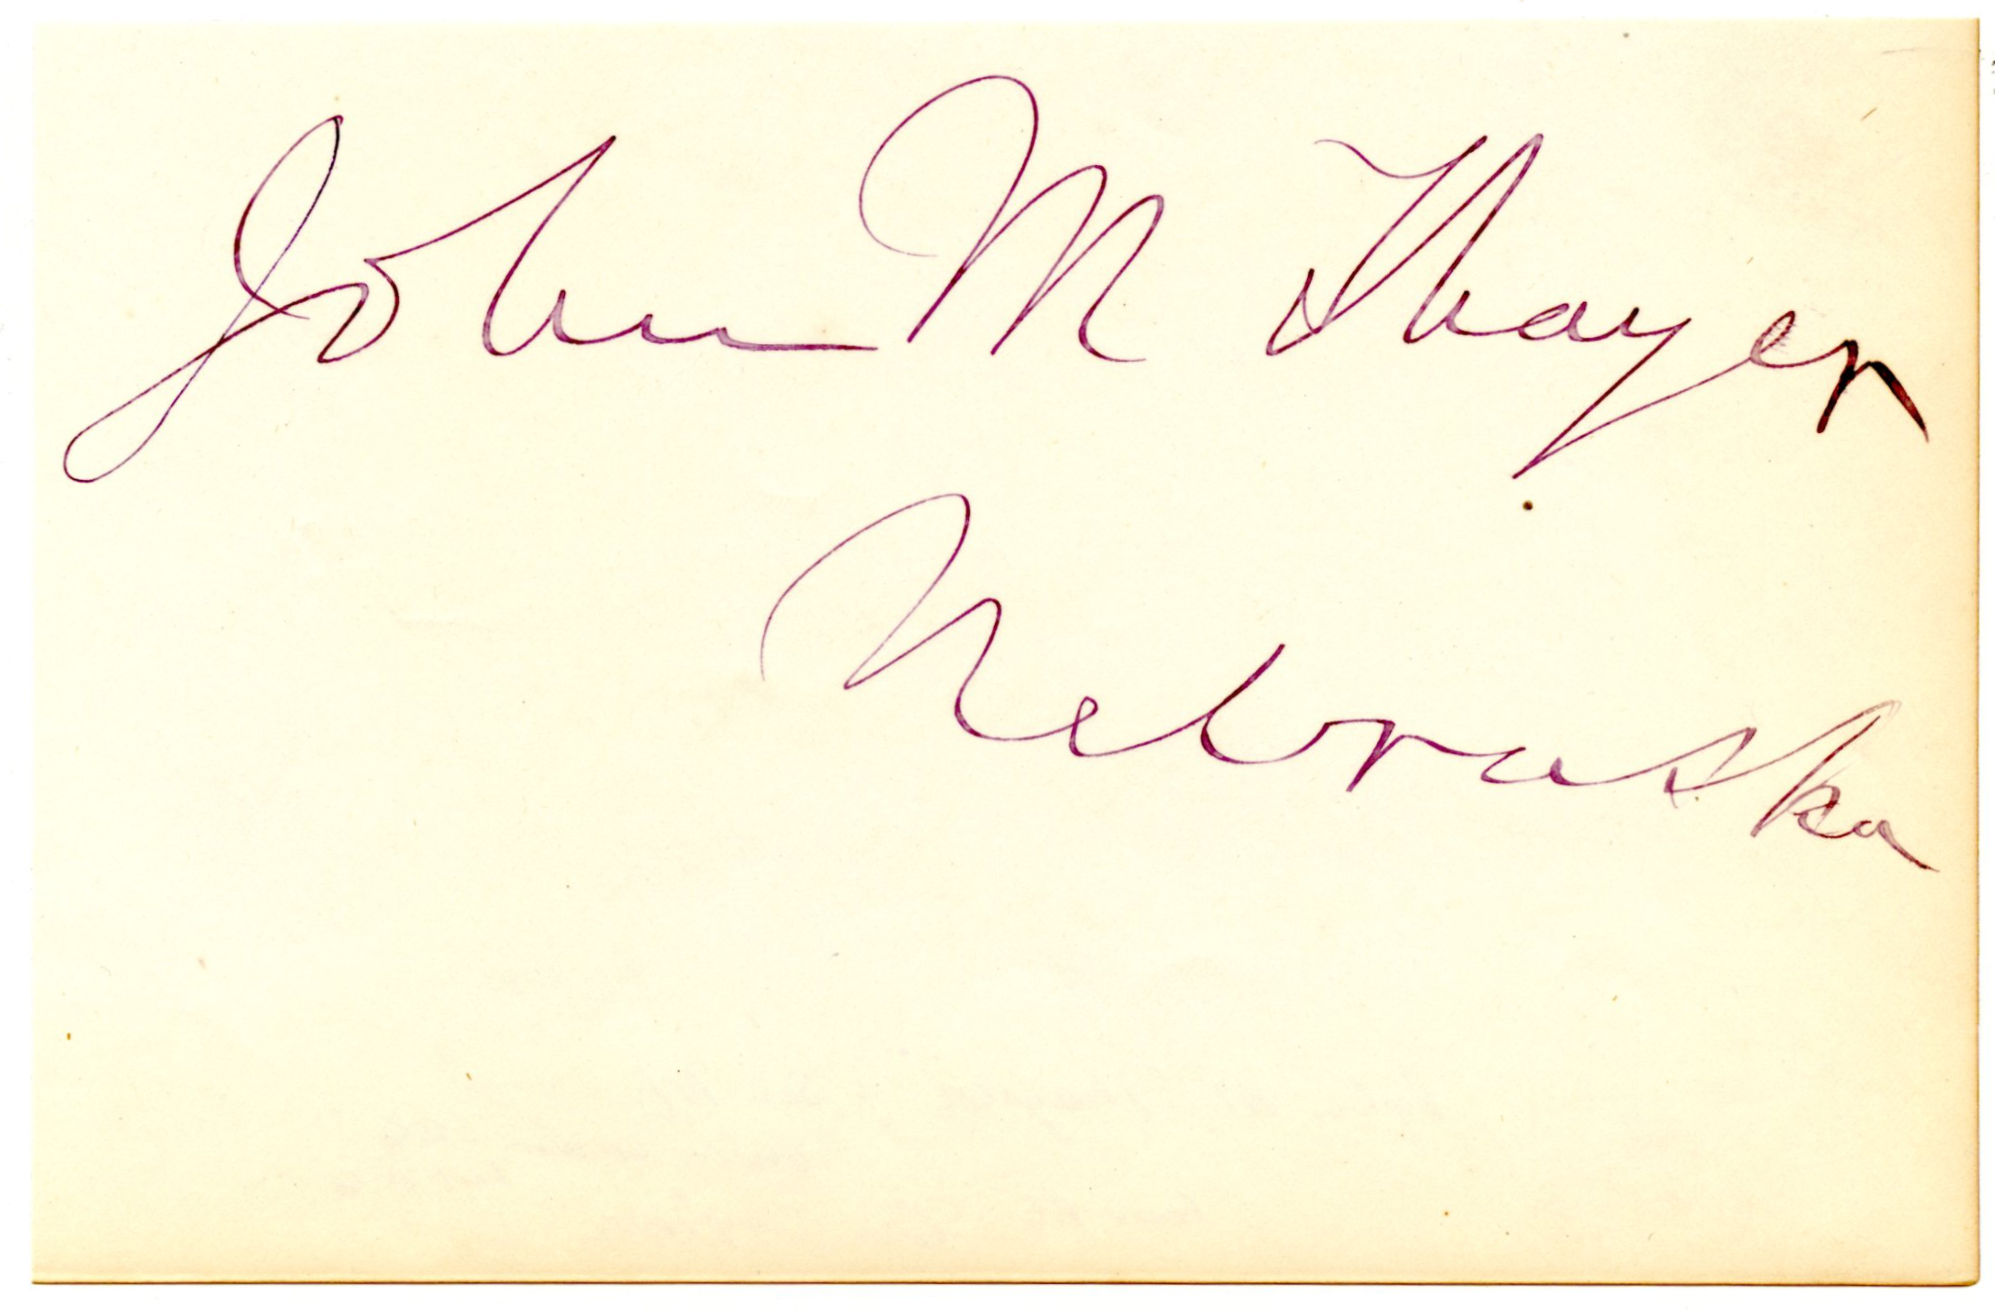 John M Thayer
Nebraska